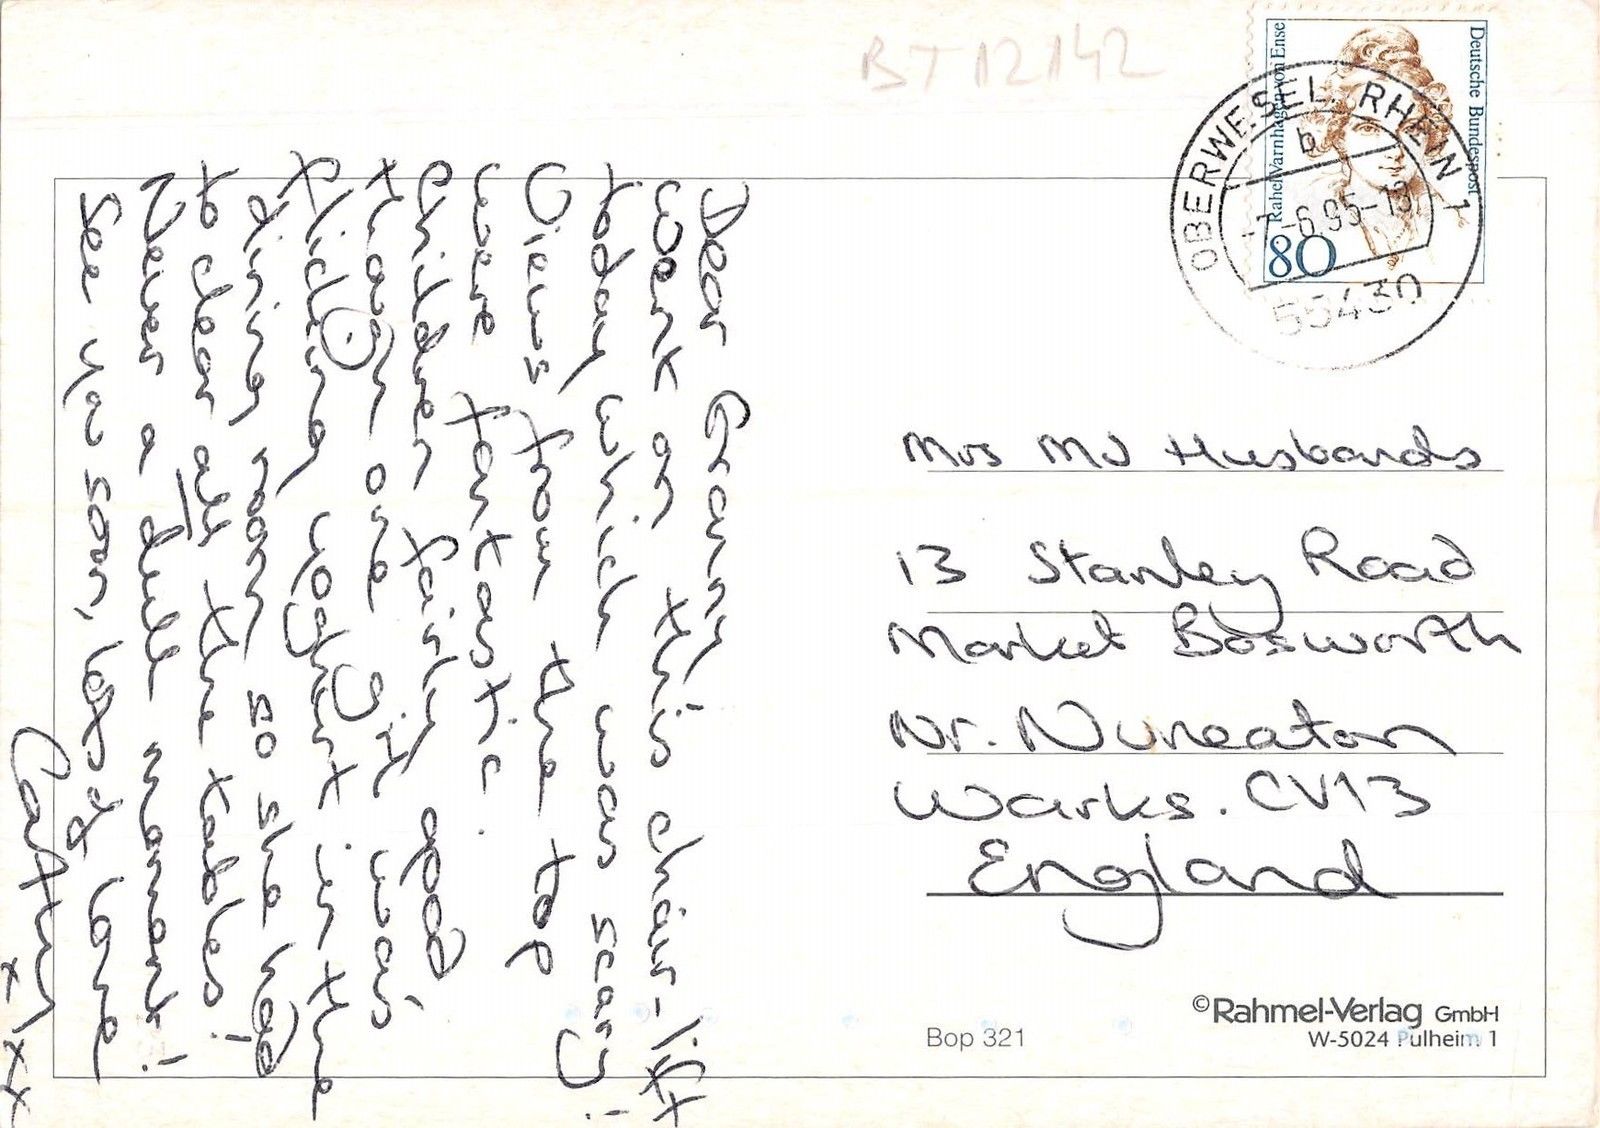 BT12142
Deutsche Bundespost
Rahel Varnhagen von Ense
80
OBERWESEL, RHEIN 1
b
-6.95-13
55430
Dear Granny,
Went on this chair-lift
today which was scary!
Views from the top
were fantastic.
Children fairly good
though one girl was
flicking yoghurt in the
dining room so she had
to clear all the tables!
Never a dull moment!
See ya soon, lots of love
Cathy
x x x
Mrs MJ Husbands
13 Stanley Road
Market Bosworth
Nr. Nuneaton
Warks. CV13
England
©Rahmel-Verlag GmbH
W-5024 Pulheim 1
Bop 321